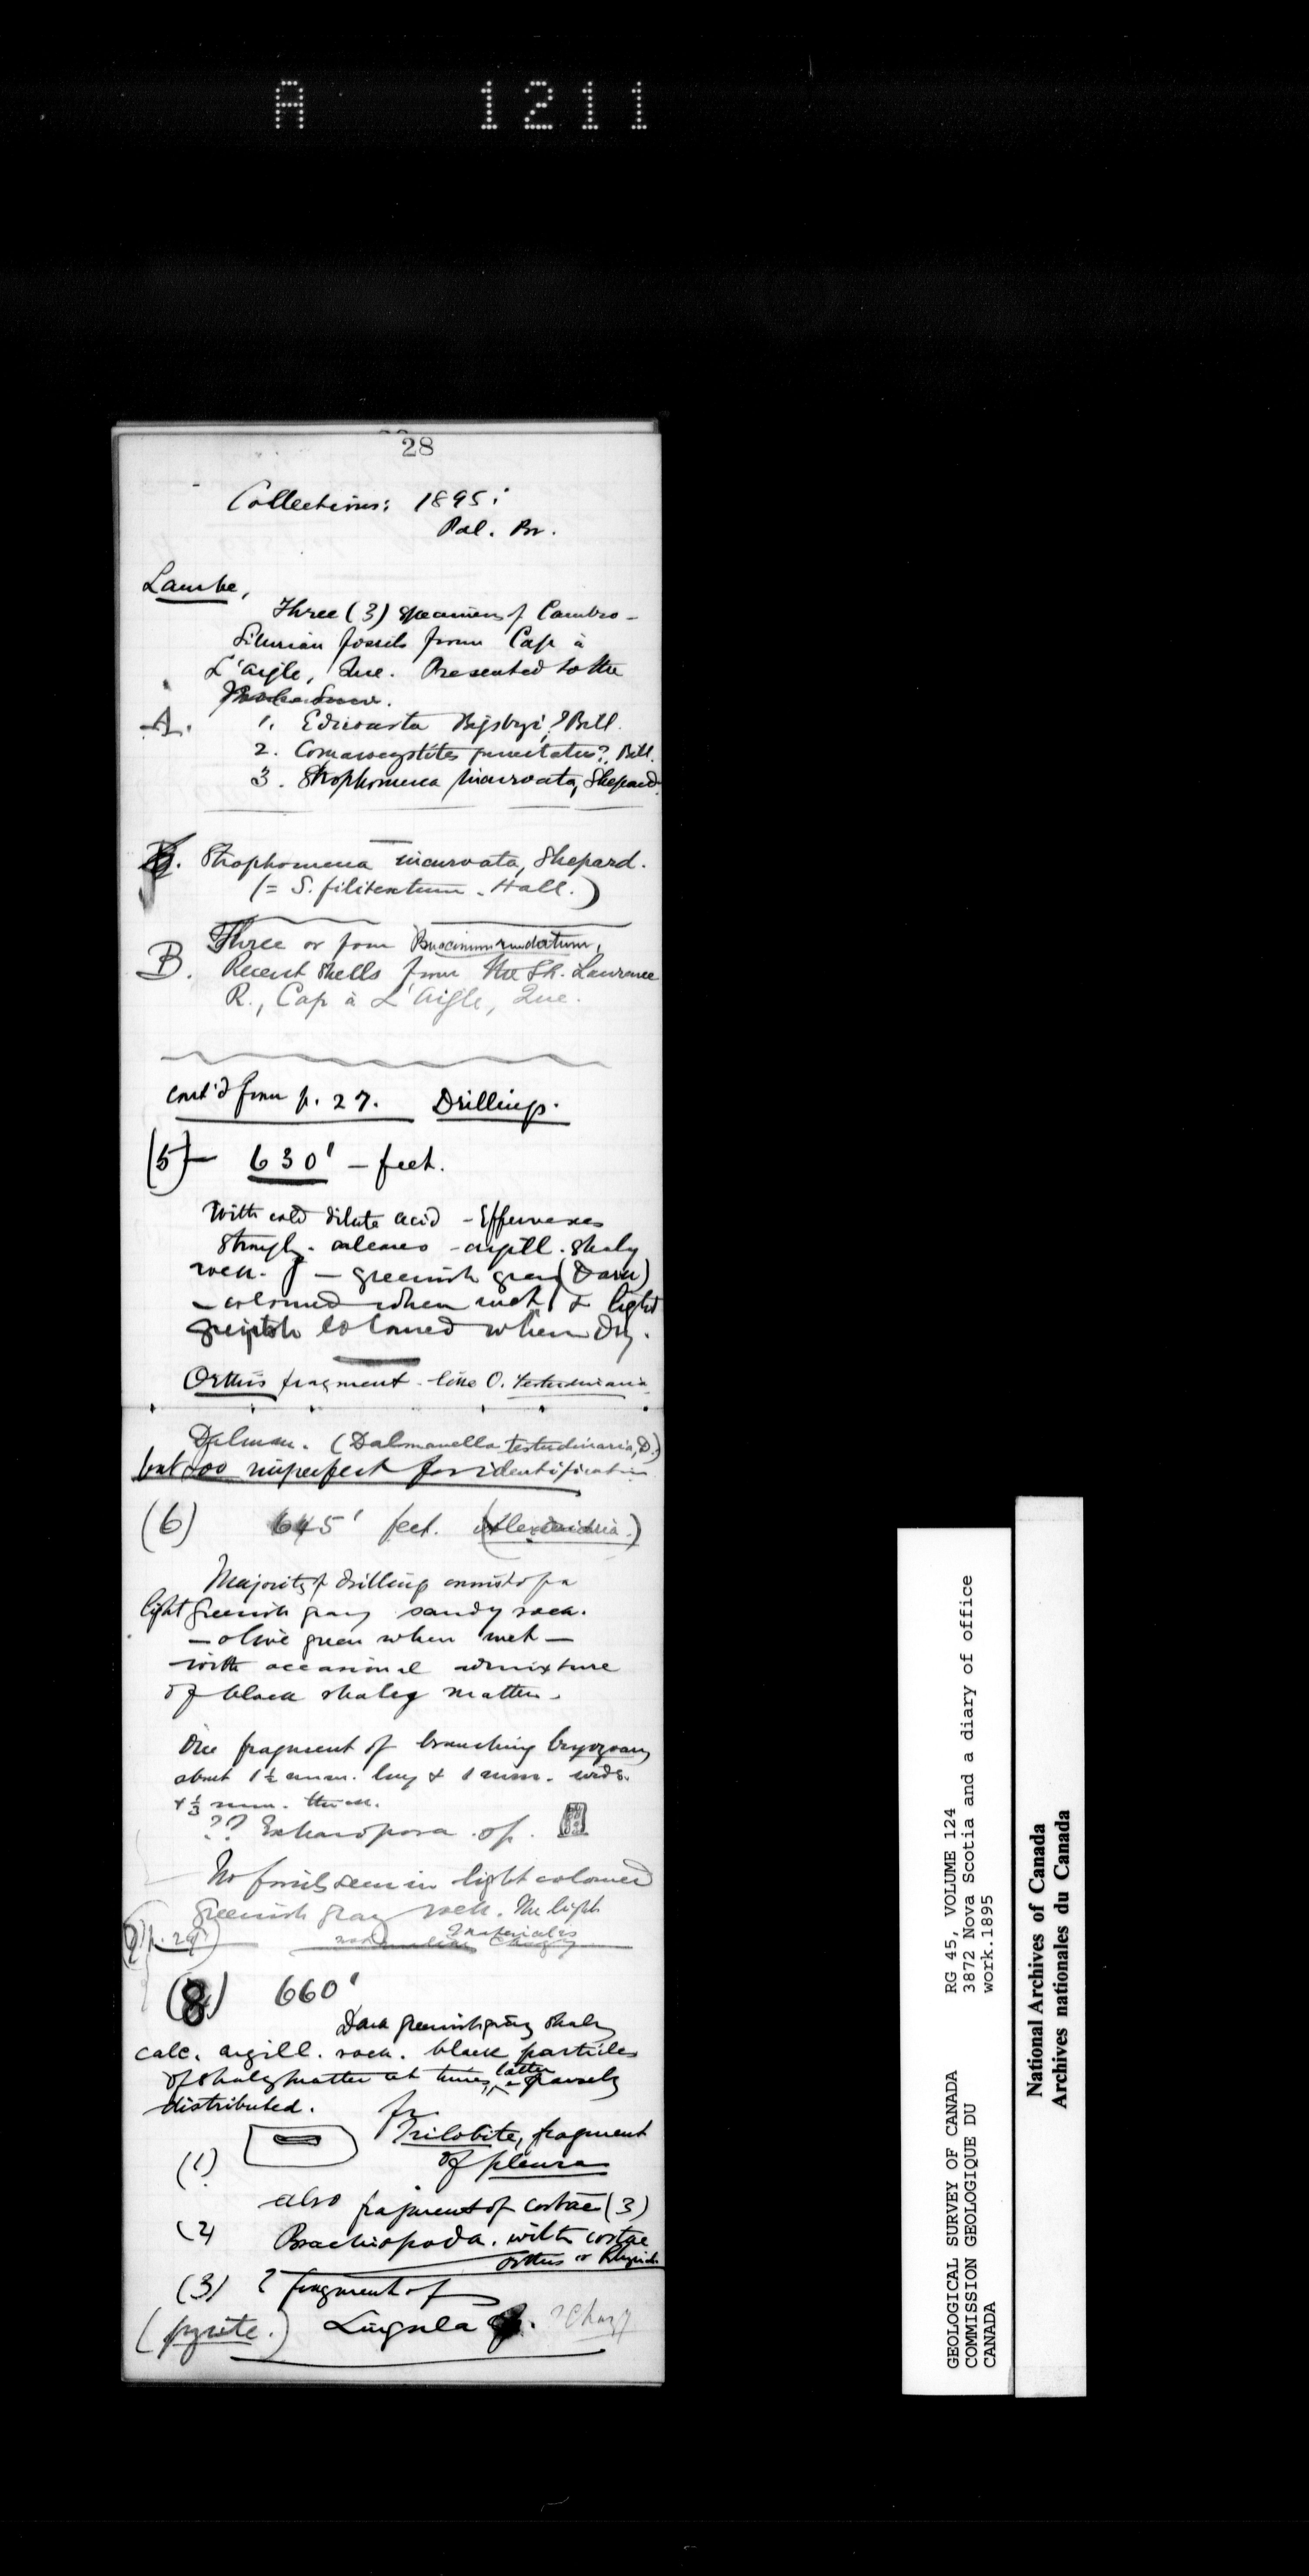 A 1211
28
Collections: 1895:
Pal. Br.
Lambe,
Three (3) specimens of Cambro-
Silurian fossils from Cap à
L'Aigle, Que. Presented to the
A.
1. Edrioaster Bigsbyi, ? Bill.
2. Comarocystites punctatus?, Bill.
3. Strophomena incurvata, Shepard.
Strophomena incurvata, Shepard.
(= S. filitextum. Hall.)
Three or four Buccinum undatum,
B. Recent shells from the St. Lawrence
R., Cap à L'Aigle, Que.
cont'd from p. 27. Drillings.
(5) - 630' - feet.
With cold dilute acid - Effervesces
strongly. calcareo - argill. shaly
rock. - greenish gray (Dark)
- coloured when wet & light
coloured when dry.
Orthis fragment - like O. testudinaria
Dalman. (Dalmanella testudinaria, D.)
but too imperfect for identification
(6) 645' feet.
Majority of drillings consist of a
light greenish gray sandy rock.
- olive green when wet -
with occasional admixture
of black shaley matter.
One fragment of branching bryozoan
about 1½ mm. long & 1 mm. wide.
& ⅓ mm. thick.
?? Escharopora sp.
No fossils seen in light coloured
greenish gray rock. The light
materials
(8) 660'
Dark greenish gray shaly
calc. argill. rock. black particles
of shaly matter at times, latter sparsely
distributed.
(1) Trilobite, fragment
of pleura
also fragment of costae (3)
(2) Brachiopoda. with costae
Orthis or
(3) ? fragment of
(pyrite.) Lingula
GEOLOGICAL SURVEY OF CANADA
COMMISSION GEOLOGIQUE DU
CANADA
RG 45, VOLUME 124
3872 Nova Scotia and a diary of office
work.1895
National Archives of Canada
Archives nationales du Canada